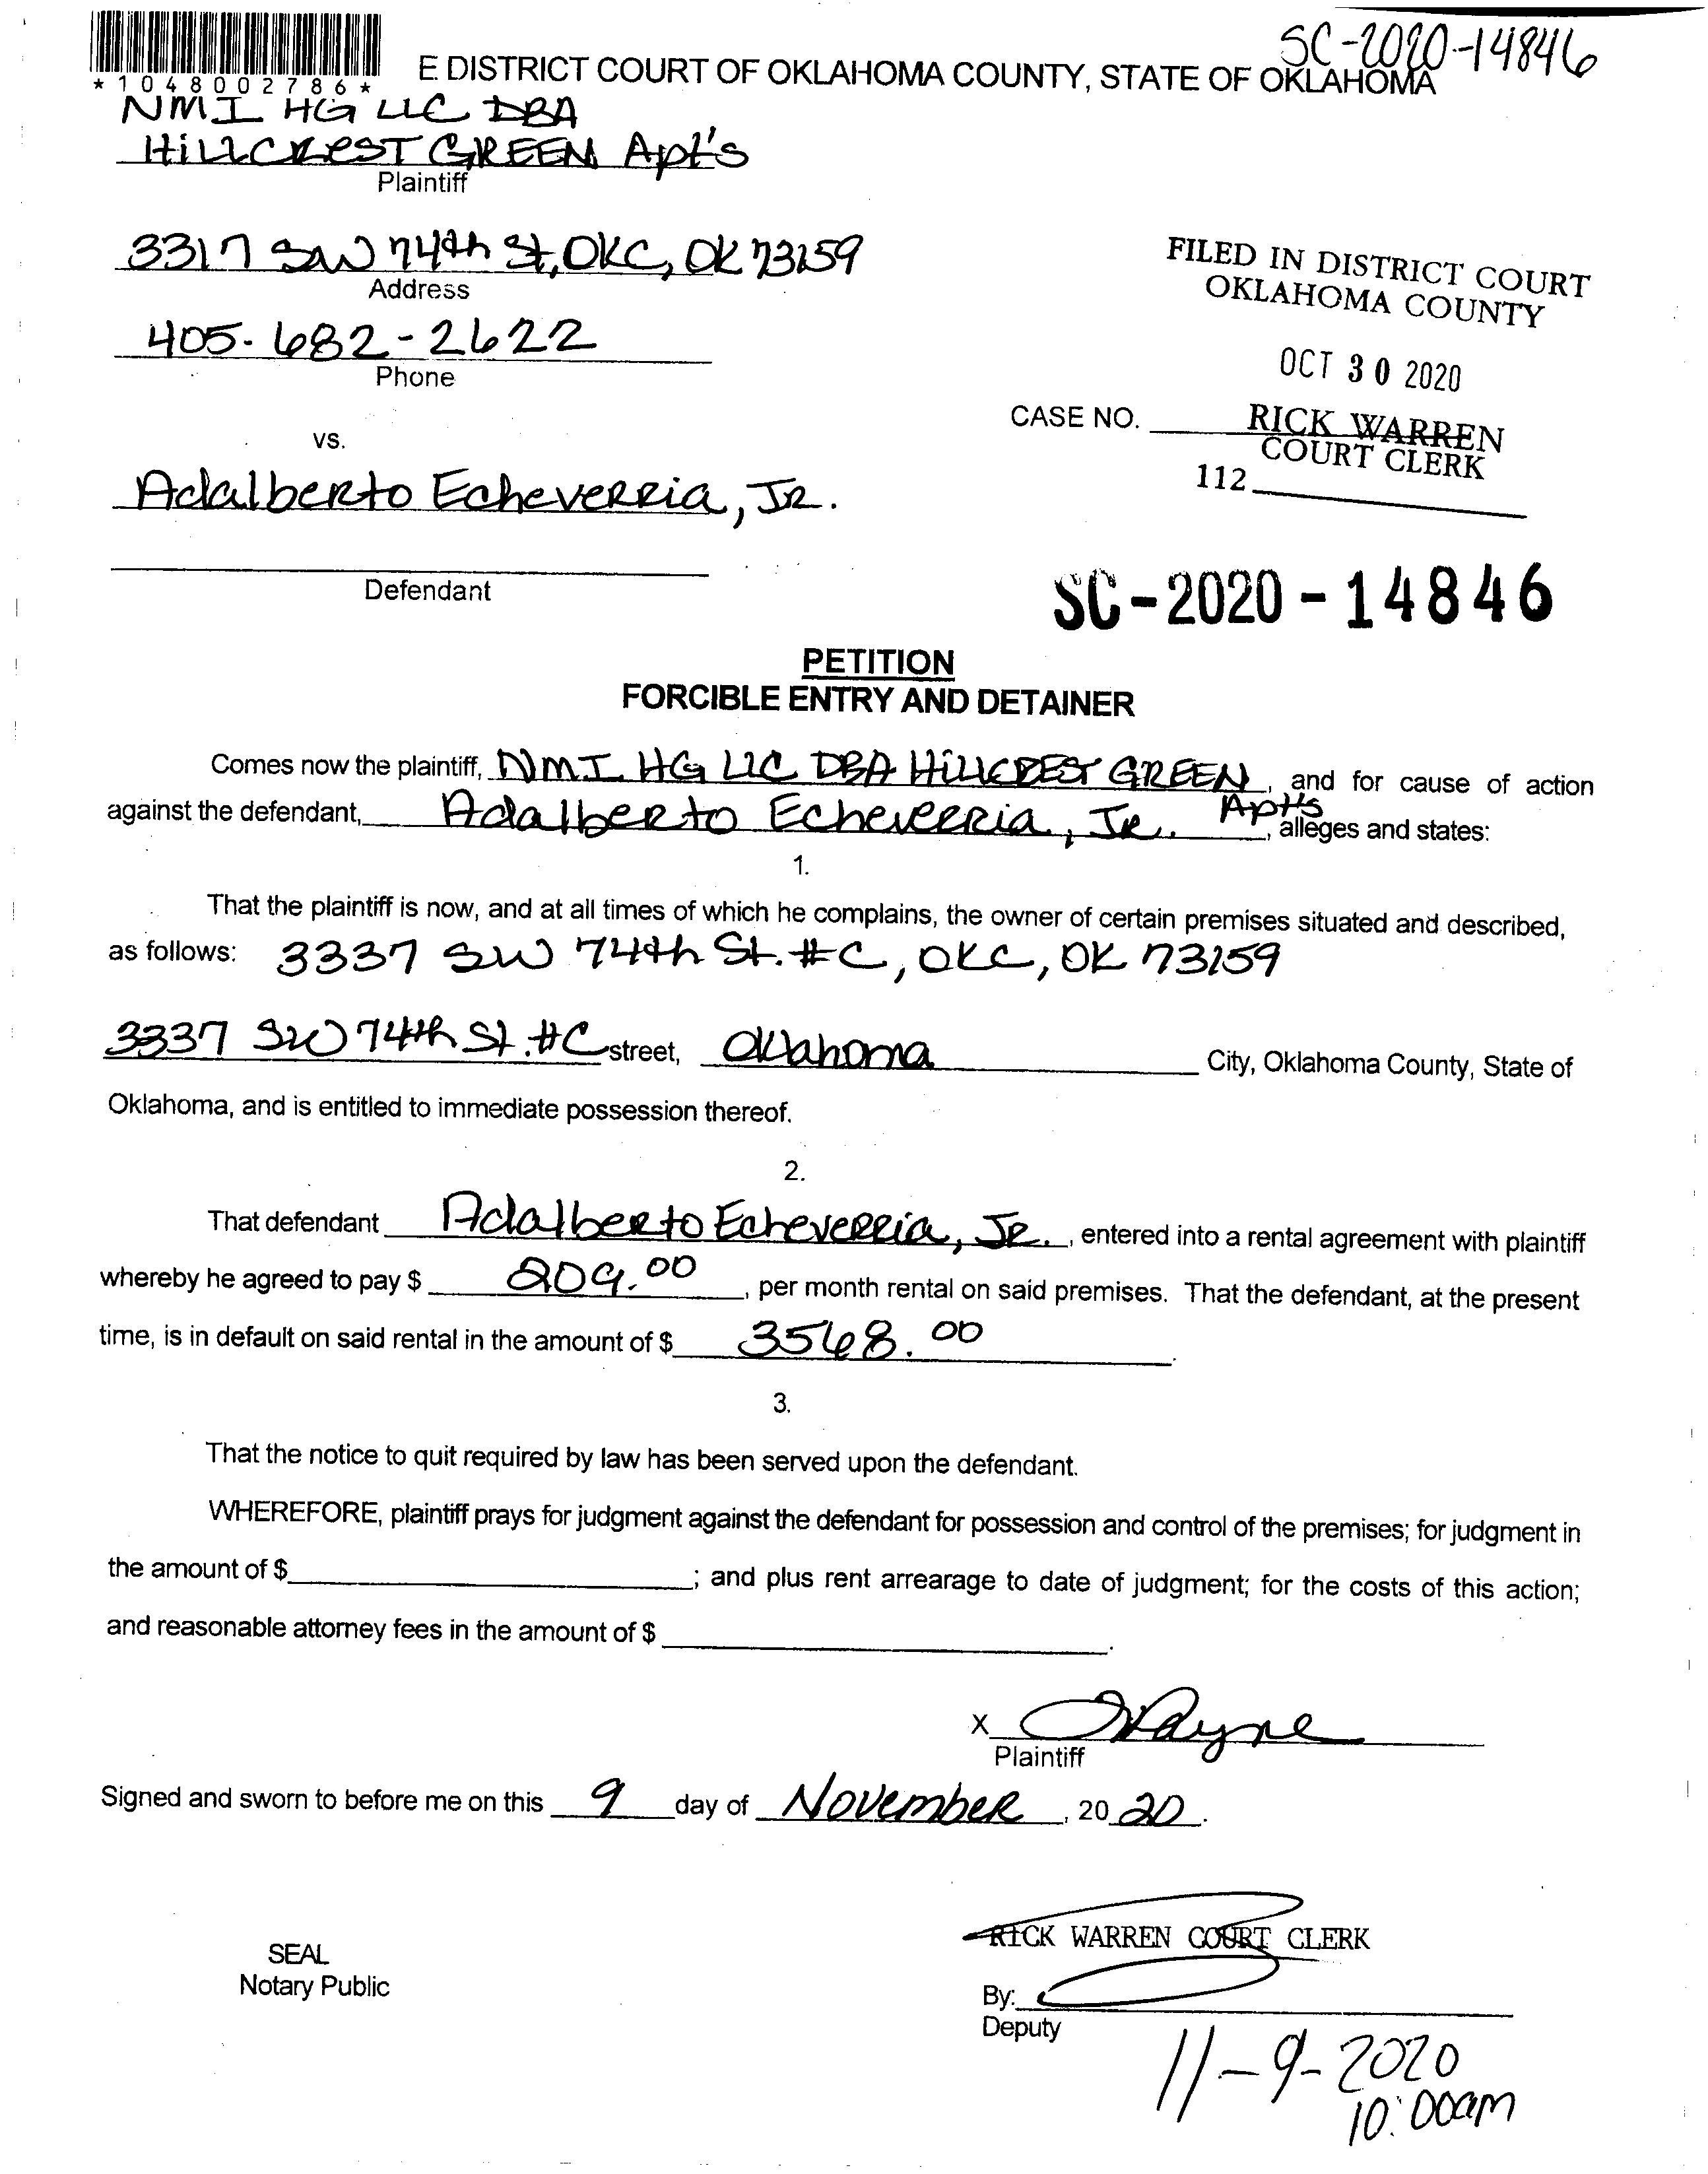 SC-2020-14846
*1048002786*
E DISTRICT COURT OF OKLAHOMA COUNTY, STATE OF OKLAHOMA
NMI HG LLC DBA
HiLLCREST GREEN Apt's
Plaintiff
3317 SW 74th St, OKC, OK 73159
Address
405-682-2622
Phone
FILED IN DISTRICT COURT
OKLAHOMA COUNTY
OCT 30 2020
CASE NO.
RICK WARREN
COURT CLERK
112
vs.
Adalberto Echeverria, Jr.
Defendant
SC-2020-14846
PETITION
FORCIBLE ENTRY AND DETAINER
Comes now the plaintiff, NMI HG LLC DBA HiLLCREST GREEN, and for cause of action
Apt's
against the defendant, Adalberto Echeverria, Jr., alleges and states:
1.
That the plaintiff is now, and at all times of which he complains, the owner of certain premises situated and described,
as follows: 3337 SW 74th St. #C, OKC, OK 73159
3337 SW 74th St. #C street, Oklahoma City, Oklahoma County, State of
Oklahoma, and is entitled to immediate possession thereof.
2.
That defendant Adalberto Echeverria, Jr., entered into a rental agreement with plaintiff
whereby he agreed to pay $ 209.00, per month rental on said premises. That the defendant, at the present
time, is in default on said rental in the amount of $ 3568.00.
3.
That the notice to quit required by law has been served upon the defendant.
WHEREFORE, plaintiff prays for judgment against the defendant for possession and control of the premises; for judgment in
the amount of $ ; and plus rent arrearage to date of judgment; for the costs of this action;
and reasonable attorney fees in the amount of $ .
X
Plaintiff
Signed and sworn to before me on this 9 day of November, 2020.
RICK WARREN COURT CLERK
SEAL
Notary Public
By:
Deputy
11-9-2020
10:00am